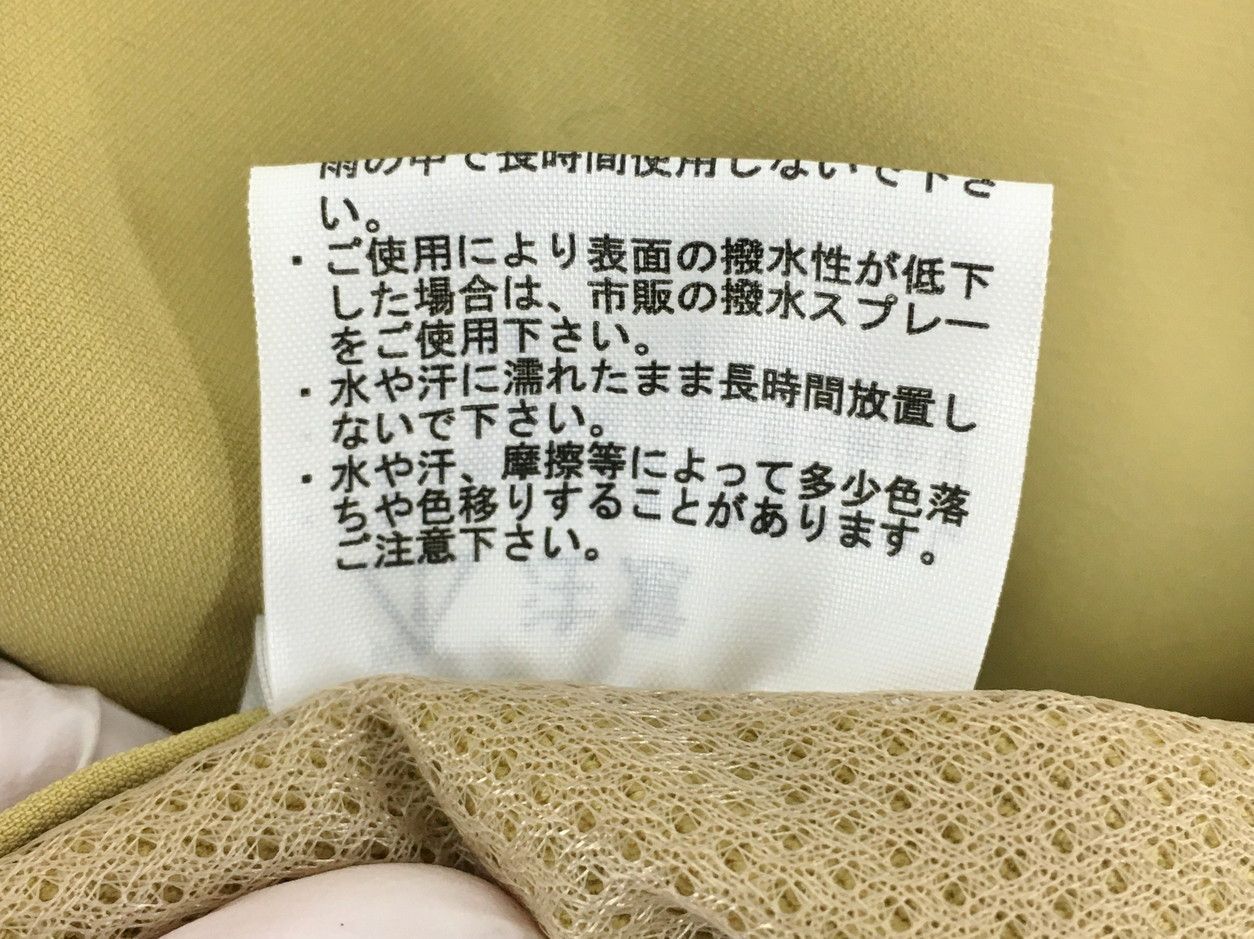 雨の中で長時間使用しないで下さ
い。
・ご使用により表面の撥水性が低下
した場合は、市販の撥水スプレー
をご使用下さい。
・水や汗に濡れたまま長時間放置し
ないで下さい。
・水や汗、摩擦等によって多少色落
ちや色移りすることがあります。
ご注意下さい。